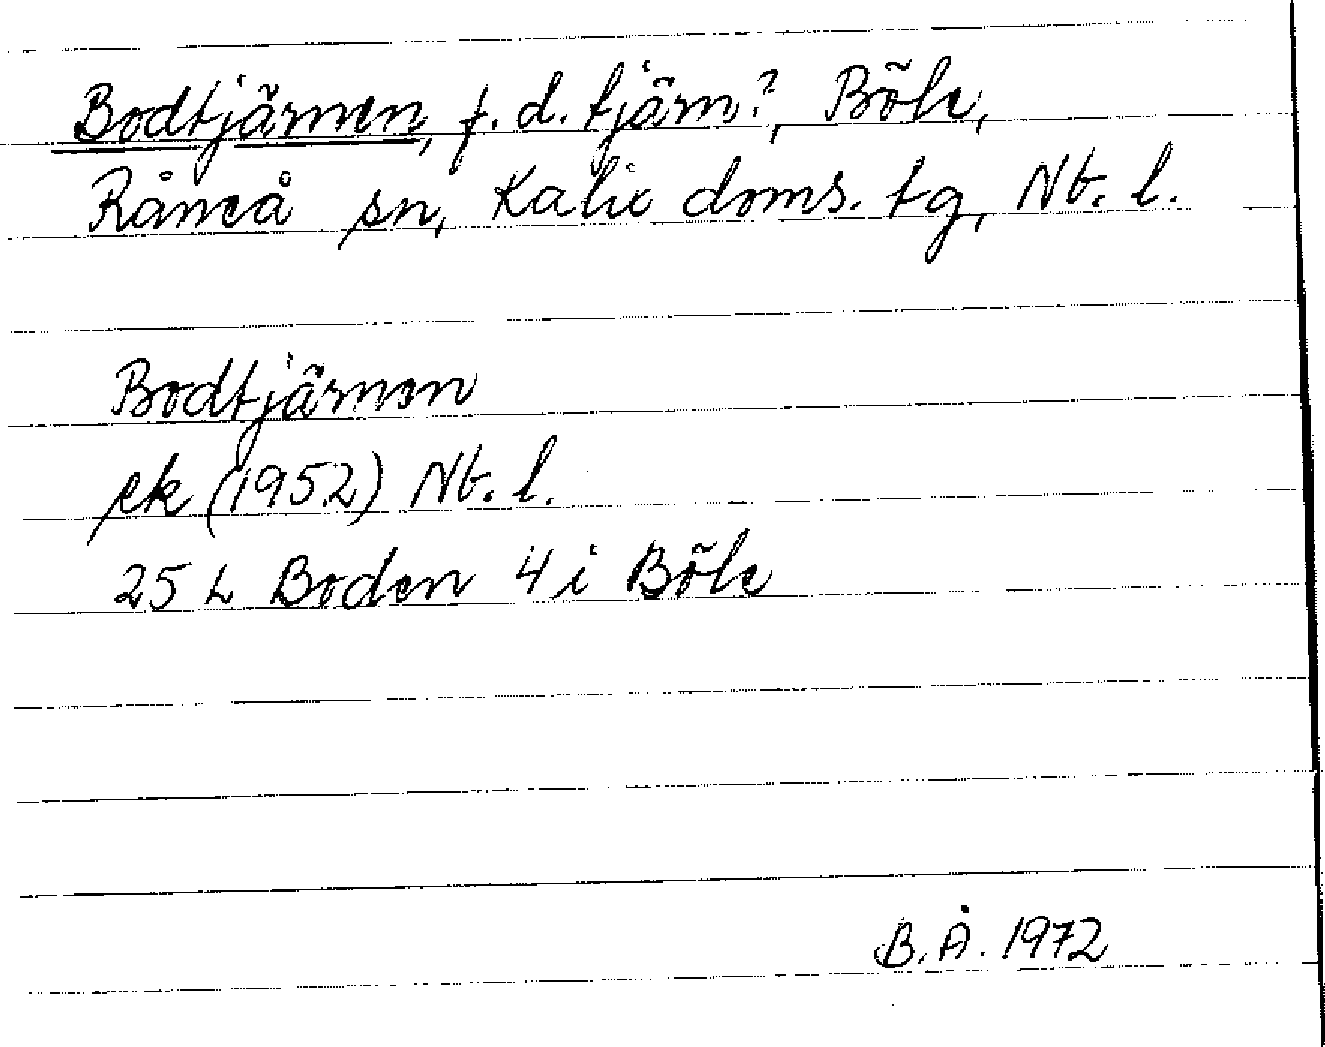 Bodtjärnen, f.d. tjärn?, Böle,
Råneå sn, Kalix doms. tg, Nb. l.
Bodtjärnen
ek (1952) Nb. l.
25 L Boden 4 i Böle
B. Å. 1972